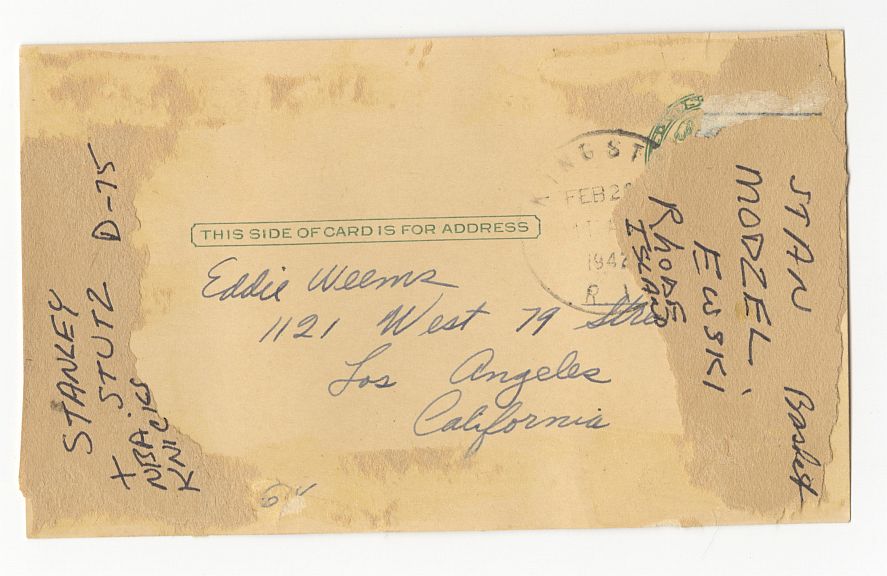 THIS SIDE OF CARD IS FOR ADDRESS
Eddie Weems
1121 West 79 Stre
Los Angeles
California
INGST
FEB 2
1942
R. I.
STAN Basket
MODZEL.
EWSKI
Rhode
ISLAND
STANLEY
STUTZ D-75
+
NBA
KNICKS